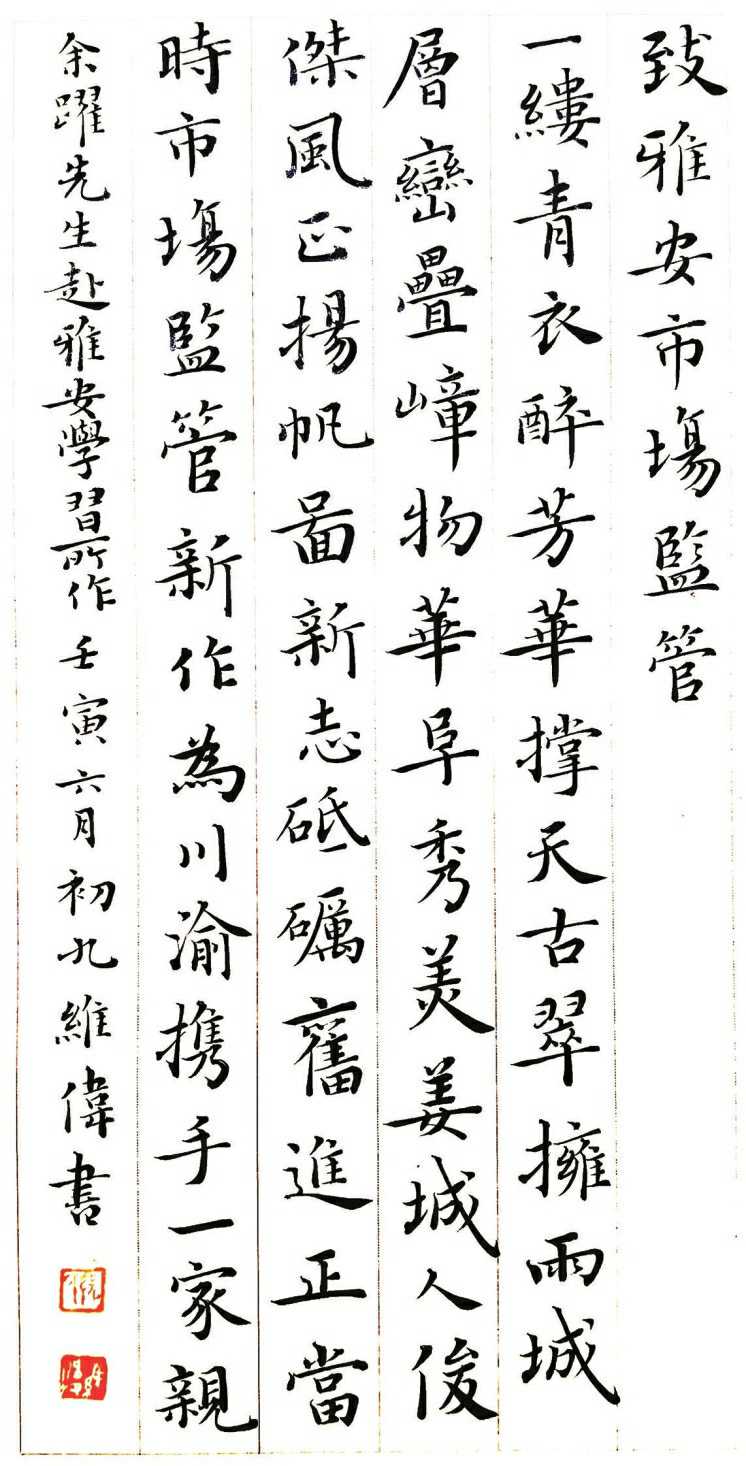 致雅安市場監管
一縷青衣醉芳華撐天古翠擁雨城
層巒疊嶂物華阜秀美姜城人俊
傑風正揚帆啚新志砥礪舊進正當
時市場監管新作為川渝携手一家親
余躍先生赴雅安學習所作壬寅六月初九維偉書